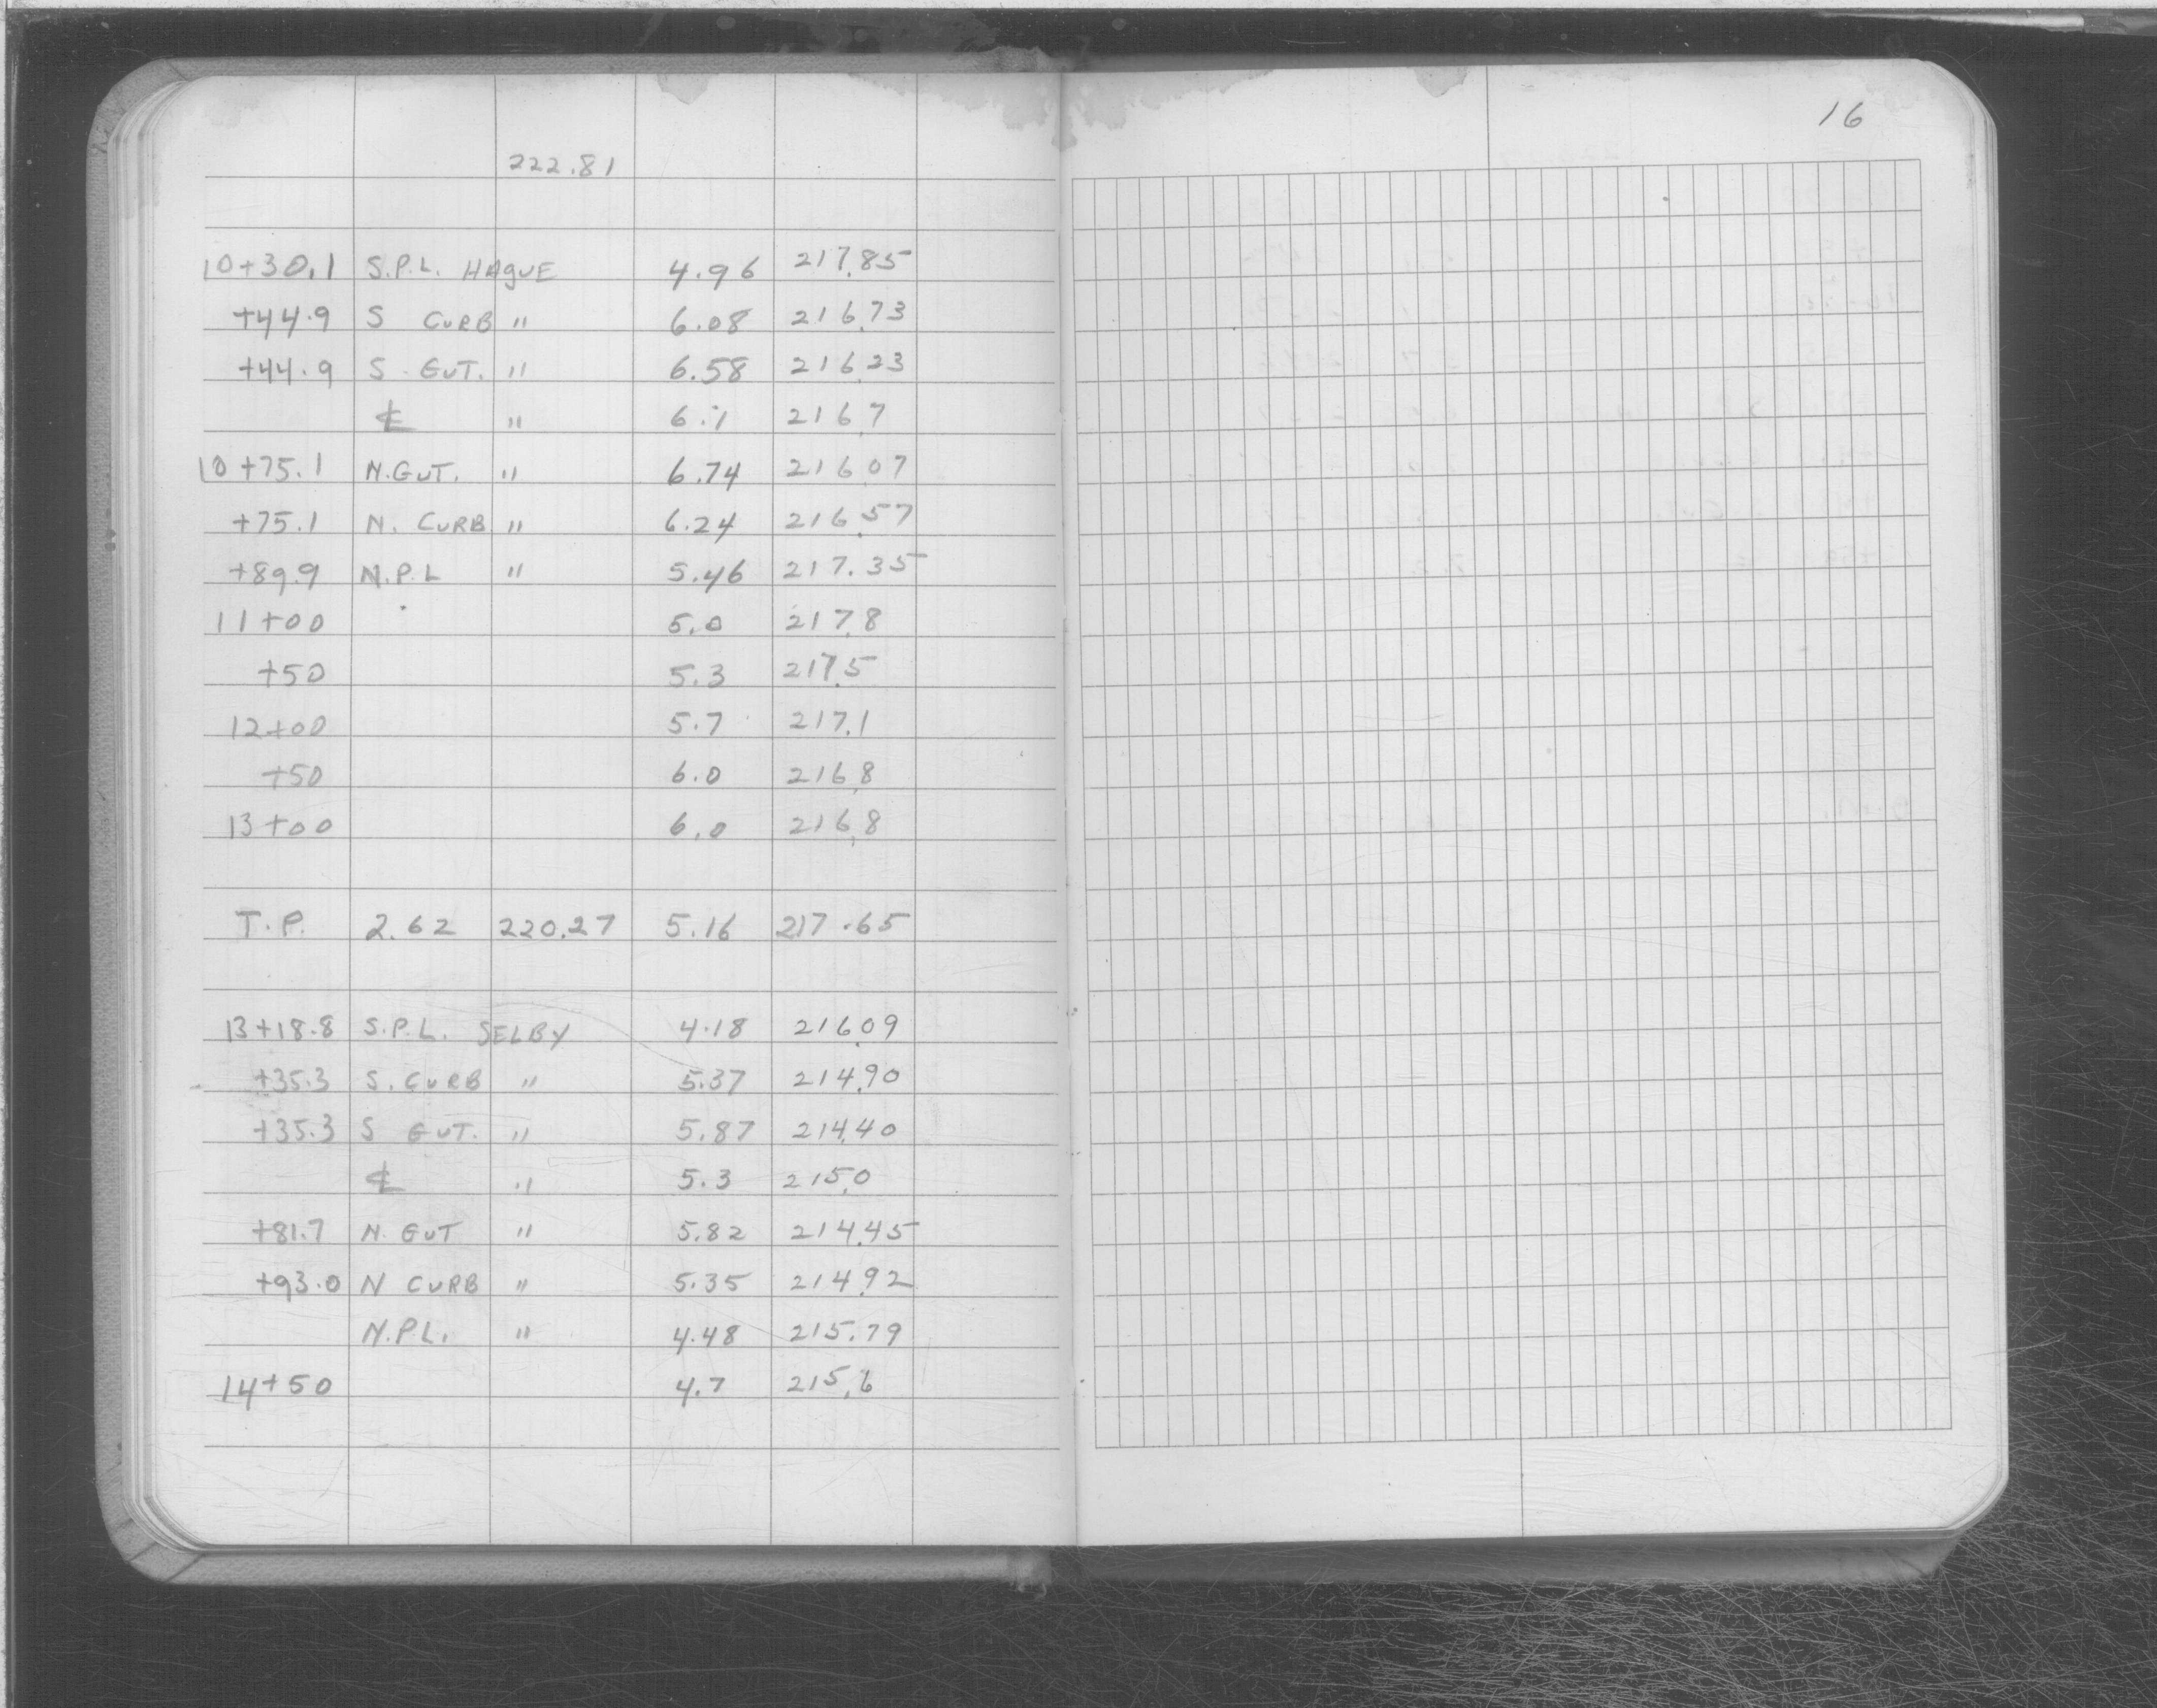 16
222.81
10+30.1 S.P.L. HAGUE 4.96 217.85
+44.9 S CURB " 6.08 216.73
+44.9 S GUT. " 6.58 216.23
℄ " 6.1 216.7
10+75.1 N.GUT. " 6.74 216.07
+75.1 N. CURB " 6.24 216.57
+89.9 N.P.L " 5.46 217.35
11+00 5.0 217.8
+50 5.3 217.5
12+00 5.7 217.1
+50 6.0 216.8
13+00 6.0 216.8
T.P. 2.62 220.27 5.16 217.65
13+18.8 S.P.L. SELBY 4.18 216.09
+35.3 S. CURB " 5.37 214.90
+35.3 S GUT. " 5.87 214.40
℄ " 5.3 215.0
+81.7 N. GUT " 5.82 214.45
+93.0 N CURB " 5.35 214.92
N.P.L. " 4.48 215.79
14+50 4.7 215.6